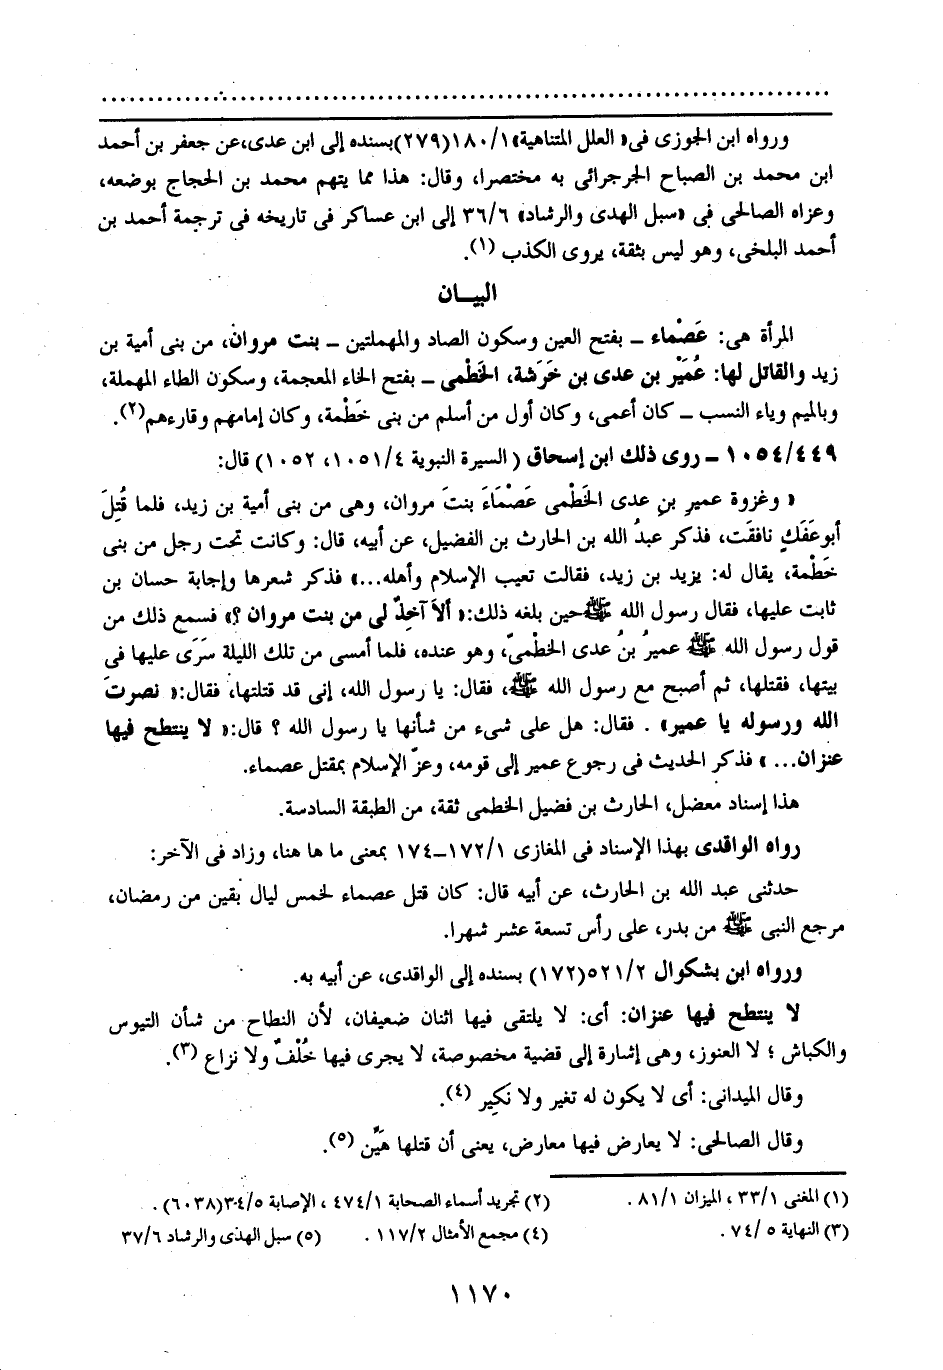 ورواه ابن الجوزى فى« العلل المتناهية» ١٨٠/١(٢٧٩)بسنده إلى ابن عدى،عن جعفر بن أحمد
ابن محمد بن الصباح الجرجرائى به مختصرا، وقال: هذا مما يتهم محمد بن الحجاج بوضعه،
وعزاه الصالحى فى «سبل الهدى والرشاد» ٣٦/٦ إلى ابن عساكر فى تاريخه فى ترجمة أحمد بن
أحمد البلخى، وهو ليس بثقة، يروى الكذب (١).
البيــان
المرأة هى: عَصْماء ــ بفتح العين وسكون الصاد والمهملتين ــ بنت مروان، من بنى أمية بن
زيد والقاتل لها: عُمَيْر بن عدى بن خَرَشة، الخَطْمى ــ بفتح الخاء المعجمة، وسكون الطاء المهملة،
وبالميم وياء النسب ــ كان أعمى، وكان أول من أسلم من بنى خَطْمة، وكان إمامهم وقارءهم(٢).
١٠٥٤/٤٤٩ ــ روى ذلك ابن إسحاق ( السيرة النبوية ١٠٥١/٤، ١٠٥٢) قال:
« وغزوة عميرِ بنِ عدى الخَطْمى عَصْمَاءَ بنتَ مروان، وهى من بنى أمية بن زيد، فلما قُتِلَ
أبوعَفَكٍ نافقَت، فذكر عبدُ الله بن الحارث بن الفضيل، عن أبيه، قال: وكانت تحت رجل من بنى
خَطْمة، يقال له: يزيد بن زيد، فقالت تعيب الإسلام وأهله...» فذكر شعرها وإجابة حسان بن
ثابت عليها، فقال رسول الله ﷺحين بلغه ذلك:« ألاَ آخِذٌ لى من بنت مروان ؟» فسمع ذلك من
قول رسول الله ﷺ عميرُ بنُ عدى الخَطْمىّ، وهو عنده، فلما أمسى من تلك الليلة سَرَى عليها فى
بيتها، فقتلها، ثم أصبح مع رسول الله ﷺ، فقال: يا رسول الله، إنى قد قتلتها، فقال:« نصرتَ
الله ورسوله يا عمير» . فقال: هل على شىء من شأنها يا رسول الله ؟ قال:« لا ينتطح فيها
عنزان... » فذكر الحديث فى رجوع عمير إلى قومه، وعزّ الإسلام بمقتل عصماء.
هذا إسناد معضل، الحارث بن فضيل الخطمى ثقة، من الطبقة السادسة.
رواه الواقدى بهذا الإسناد فى المغازى ١٧٢/١ــ١٧٤ بمعنى ما ها هنا، وزاد فى الآخر:
حدثنى عبد الله بن الحارث، عن أبيه قال: كان قتل عصماء لخمس ليال بقين من رمضان،
مرجع النبى ﷺ من بدر، على رأس تسعة عشر شهرا.
ورواه ابن بشكوال ٥٢١/٢(١٧٢) بسنده إلى الواقدى، عن أبيه به.
لا ينتطح فيها عنزان: أى: لا يلتقى فيها اثنان ضعيفان، لأن النطاح من شأن التيوس
والكباش ؛ لا العنوز، وهى إشارة إلى قضية مخصوصة، لا يجرى فيها خُلْفٌ ولا نزاع (٣).
وقال الميدانى: أى لا يكون له تغير ولا نَكِير (٤).
وقال الصالحى: لا يعارض فيها معارض، يعنى أن قتلها هَيِّن (٥).
(١) المغنى ٣٣/١ ، الميزان ٨١/١ . (٢) تجريد أسماء الصحابة ٤٧٤/١ ، الإصابة ٣٠٤/٥(٦٠٣٨) .
(٣) النهاية ٧٤/٥ . (٤) مجمع الأمثال ١١٧/٢ . (٥) سبل الهدى والرشاد ٣٧/٦
١١٧٠